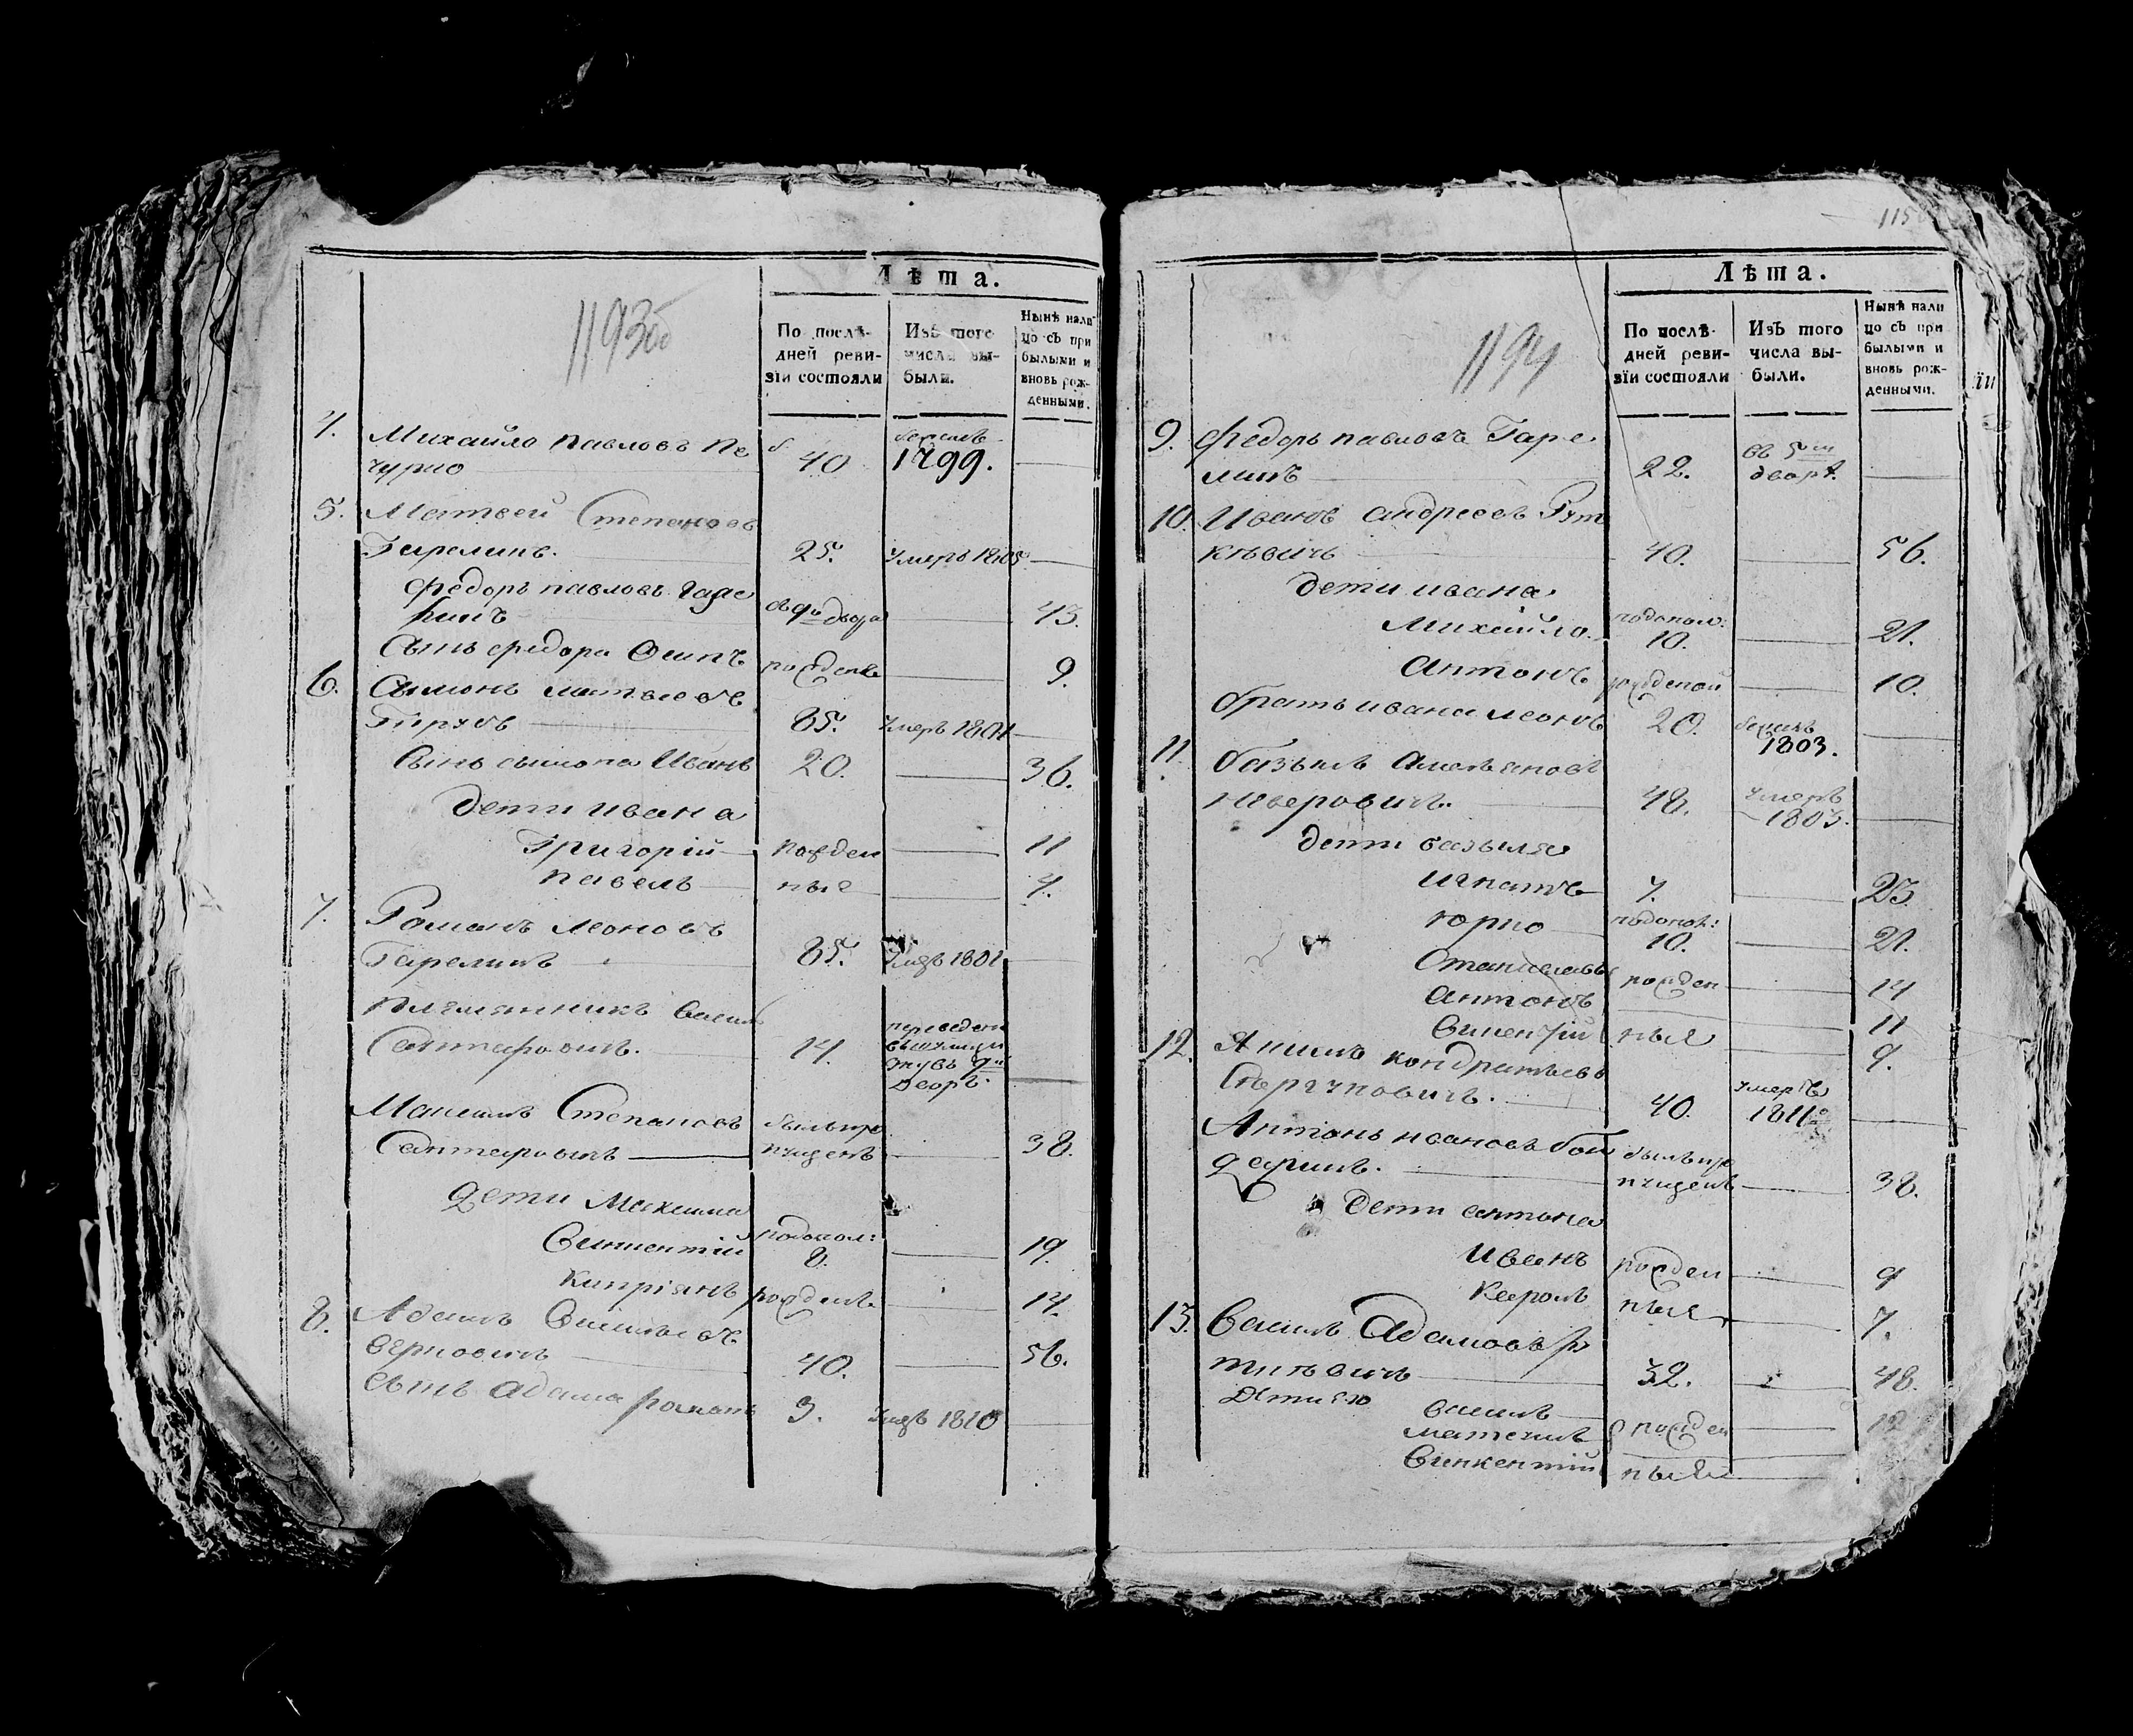 1193об
Лѣта.
По послѣ-
дней реви-
зіи состояли
Изъ того
числа вы-
были.
Нынѣ нали
цо съ при
былыми и
вновь рож-
денными.
4. Михайло павловъ Пе
чурно 40 бежалъ 1799.
5. Матвей Степановъ
Гареликъ. 25. Умеръ 1805
Федоръ павловъ Гаре
ликъ съ 9го двора 43.
Сынъ федора Осипъ рожденъ 9.
6. Сымонъ матвеевъ
85. Умеръ 1801
Сынъ сымона Иванъ 20. 36.
дети ивана
Григорій рожден 11
павелъ ные 4.
7. Романъ леоновъ
Гареликъ 85. Умръ 1801
племянникъ Василь
14. переведенъ
9й
дворъ.
Максимъ Степановъ былъ про
пущенъ 38.
дети Максима
Викентій подопол: 8. 19.
Кипріянъ рожденъ 14.
8. Адамъ Васильевъ
40. 56.
сынъ адама романъ 3. Умръ 1810
115
1194
Лѣта.
По послѣ-
дней реви-
зіи состояли
Изъ того
числа вы-
были.
Нынѣ нали
цо съ при
былыми и
вновь рож-
денными.
іи
9. Федоръ павловъ Гаре
ликъ 22. въ 5мъ
дворѣ.
10. Иванъ андреевъ Рут
кевичь 40. 56.
дети ивана
Михайло. подопол: 10. 21.
антонъ рожденой 10.
братъ ивана леонъ 20. бежалъ
1803.
11. базыль амельяновъ
неверовичъ. 48. умеръ
1803.
дети базыля
игнатъ 7. 23.
юрко подопол: 10. 21.
Станиславъ рожден 14
антонъ 11
викентій ные 9.
12. Якимъ кондратьевъ
40. умеръ
1811
Антонъ ивановъ былъ про
пущенъ 38.
дети антона
иванъ рожден 9
Кароль ные 7.
13. Василь Адамовъ Р
32. 48.
дети его василь рожден 12
Викентій ные